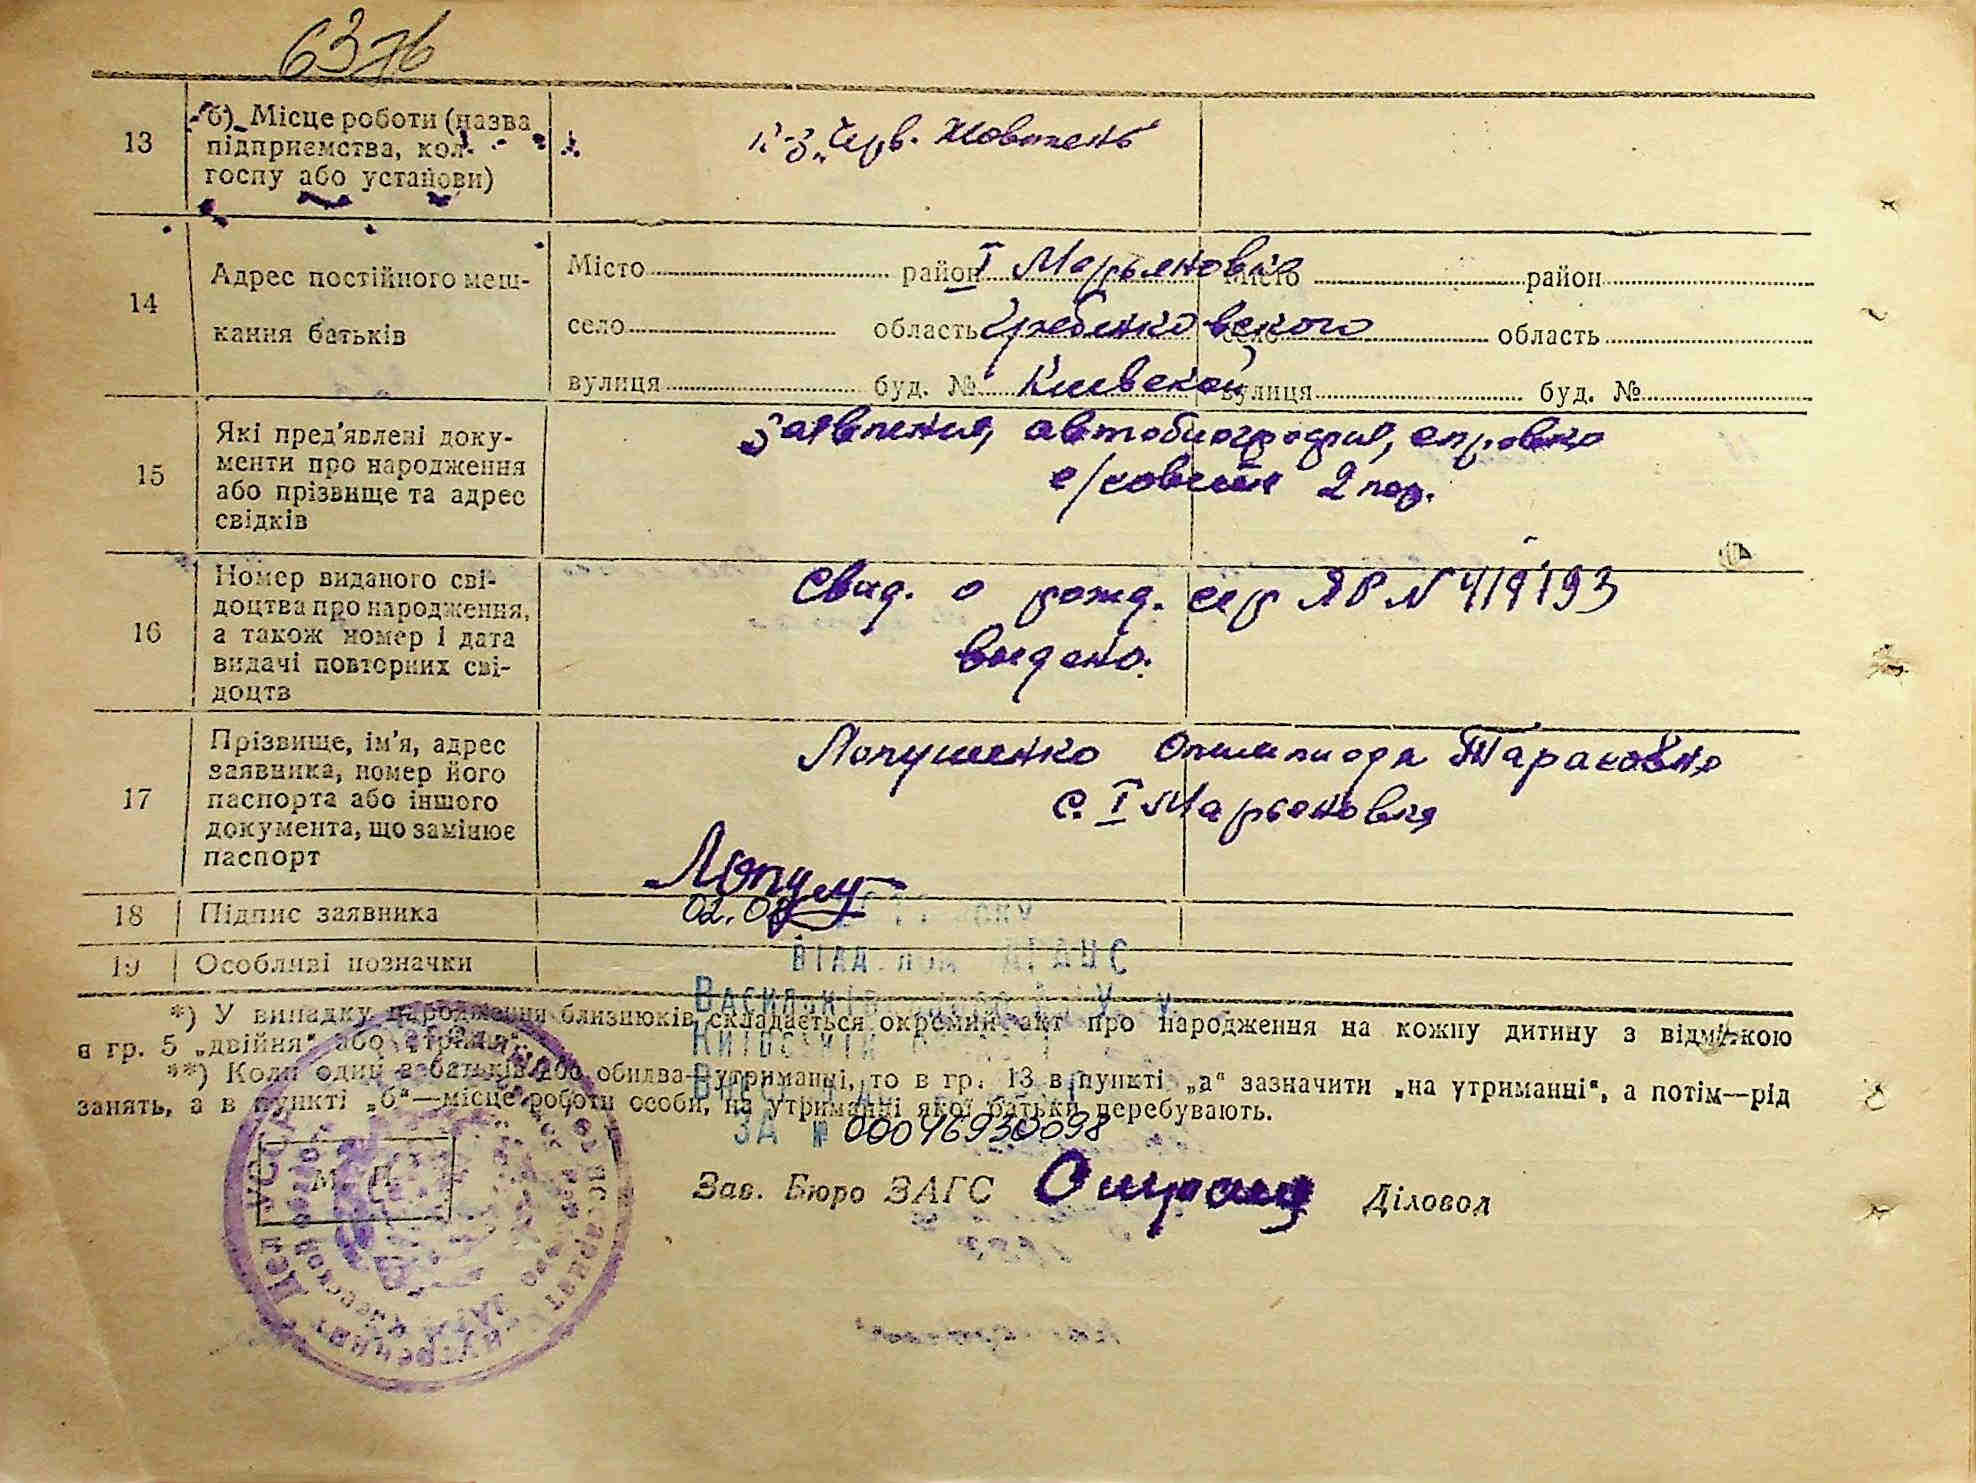 13
б) Місце роботи (назва
підприємства, кол-
госпу або установи)
к-з „Черв. Жовтень
14
Адрес постійного меш-
кання батьків
Місто район І Марьяновка Місто район
село область Гребенковского село область
вулиця буд. № Киевской вулиця буд. №
15
Які пред'явлені доку-
менти про народження
або прізвище та адрес
свідків
Заявления, автобиография, справка
с/совета 2 под.
16
Номер виданого сві-
доцтва про народження,
а також номер і дата
видачі повторних сві-
доцтв
Свид. о рожд. сер ЯР N 419193
выдано.
17
Прізвище, ім'я, адрес
заявника, номер його
паспорта або іншого
документа, що замінює
паспорт
Лопушенко Олимпиада Тарасовна
с. І Марьяновка
18
Підпис заявника
19
Особливі позначки
*) У випадку народження близнюків складається окремий акт про народження на кожну дитину з відміткою
в гр. 5 „двійня" або „трійня".
**) Коли один з батьків або обидва—утриманці, то в гр. 13 в пункті „а" зазначити „на утриманні", а потім—рід
занять, а в пункті „б"—місце роботи особи, на утриманні якої батьки перебувають.
ЗА № 00046930098
М. П.
Зав. Бюро ЗАГС Діловод